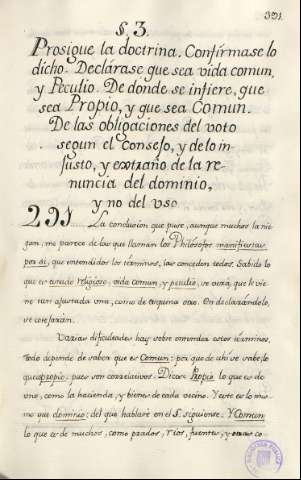 391.
§. 3.
Prosigue la doctrina. Confírmase lo
dicho. Declárase que sea vida comun,
y Peculio. De donde se infiere, que
sea Propio, y que sea Comun.
De las obligaciones del voto
segun el Consejo, y de lo in-
justo, y extraño de la re-
nuncia del dominio,
y no del uso
291 La conclusion que puse, aunque muchos la nie-
gan, me parece de las que llaman los Philósofos manifiestas
por si, que entendidos los términos, las conceden todos. Sabido lo
que es estado religioso, vida comun, y peculio, se verá, que le vie-
ne tan ajustada una, como de ninguna otra. En declarándolo,
se cotejarán.
Varias dificultades hay sobre entender estos términos.
Todo depende de saber que es Comun: por que de ahí se sabe lo
que es propio: pues son correlativos. Dícese Propio lo que es de
uno, como la hacienda, y bienes de cada vecino. Y este es lo mis-
mo que dominio; del que hablaré en el §. siguiente. Y Comun,
lo que es de muchos, como prados, rios, fuentes, y otras co-